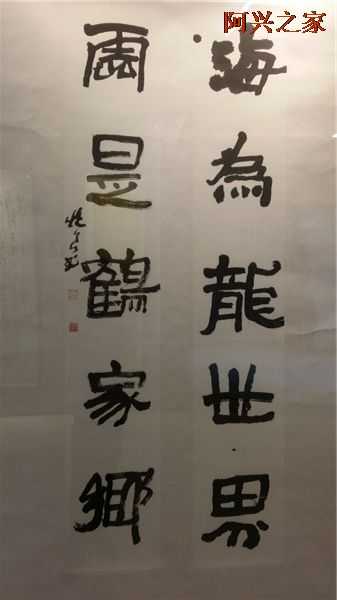 阿兴之家
海為龍世界
雲是鶴家鄉